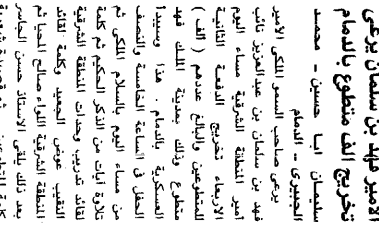 الامير فهد بن سلمان يرعى
تخريج الف متطوع بالدمام
سليمان ابا حسين - محمد
الحبيري - الدمام
يرعى صاحب السمو الملكي الامير
فهد بن سلمان بن عبدالعزيز نائب
أمير المنطقة الشرقية مساء اليوم
الاربعاء تخريج الدفعة الثانية
للمتطوعين والبالغ عددهم ( الف )
متطوع وذلك بمدينة الملك فهد
العسكرية بالدمام . هذا وسيبدأ
الحفل في الساعة الخامسة والنصف
من مساء اليوم بالسلام الملكي ثم
تلاوة آيات من الذكر الحكيم ثم كلمة
لقائد تدريب وحدات المنطقة الشرقية
النقيب عوض الجعيد وكلمة لقائد
المنطقة الشرقية اللواء صالح المحيا ثم
بعد ذلك يلقي الاستاذ حسن الجاسر